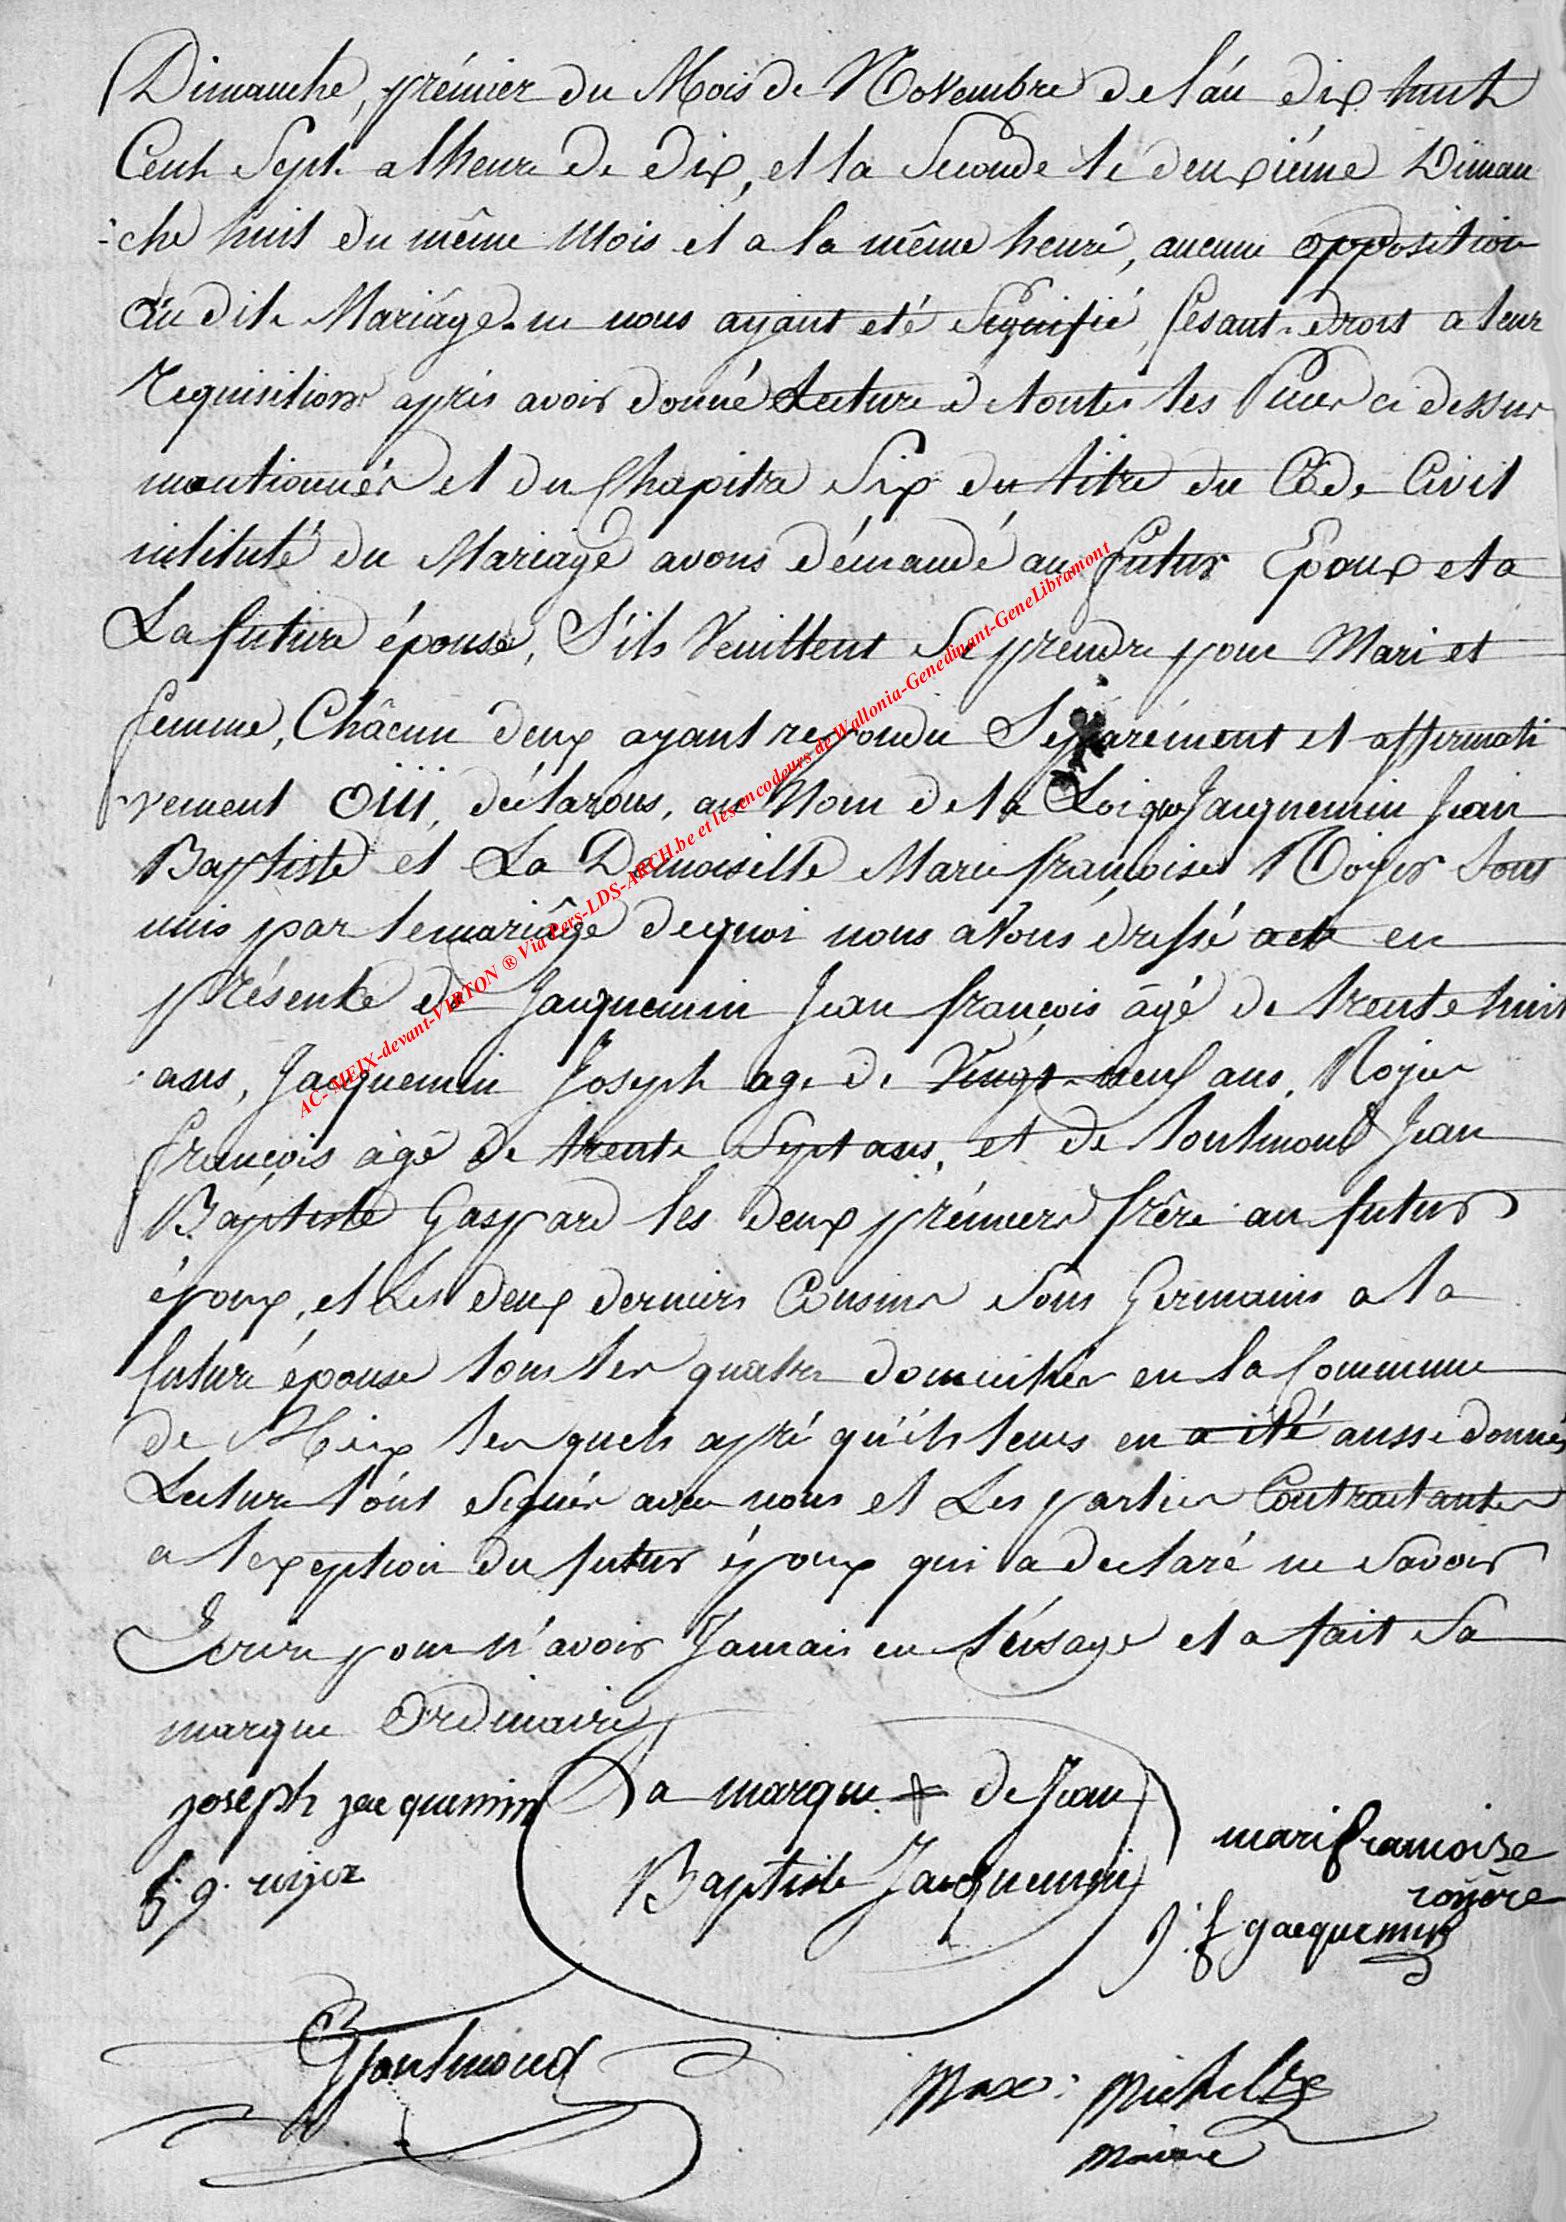 Dimanche, prémier du Mois de Novembre de l'án dix huit
Cent Sept. a lheure de dix, et la Seconde le deuxiéme Diman
-che huit du même Mois et a la même heuré, aucune opposition
áu dit Mariâge ne nous ayant eté Signifié, fesant droit a leur
requisitions aprés avoir donné Lecture de toutes les Pieces ci dessus
mentionnés et du Chapitre Six du titre du Code Civil
intitulé du Mariage avons démandé au futur Epoux et a
La future épouse, S'ils Veuillent Se prendre pour Mari et
femme, Châcun deux ayant repondu Séparément et affirmati
-vement Oüi, déclarons, au Nom de la Loi que Jacquemin Jean
Baptiste et La Demoiselle Marie françoise Royer Sont
unis par le mariâge de quoi nous avons dréssé acte en
présence de Jacquemin Jean françois âgé de trente huit
ans, Jacquemin Joseph age de Vingt-neuf ans, Royer
françois âgé de trente Sept ans, et de Toutmond Jean
Baptiste Gaspard les deux prémiers frêre au futur
époux, et Les deux derniers Cousins Sous Germains a la
future épouse tous les quatre domiciliés en la Commune
de Meix les quels apré qu'ils leurs en a été aussi donnés
Lecture l'ont Signés avec nous et Les parties Contractantes
a lexception du futur époux qui a declaré ne Savoir
Ecrire pour n'avoir Jamais eu l'úsage et a fait Sa
marque Ordinaire
joseph jacquemin
La marque + de Jean
Baptiste Jacquemin
marifrancoise
royere
f. g. roijer
j. f gacquemin
G Toutmond
Max: Michel
Maire
AC-MEIX-devant-VIRTON ® Via Pers-LDS-ARCH.be et les encodeurs de Wallonia-Genedinant-GeneLibramont